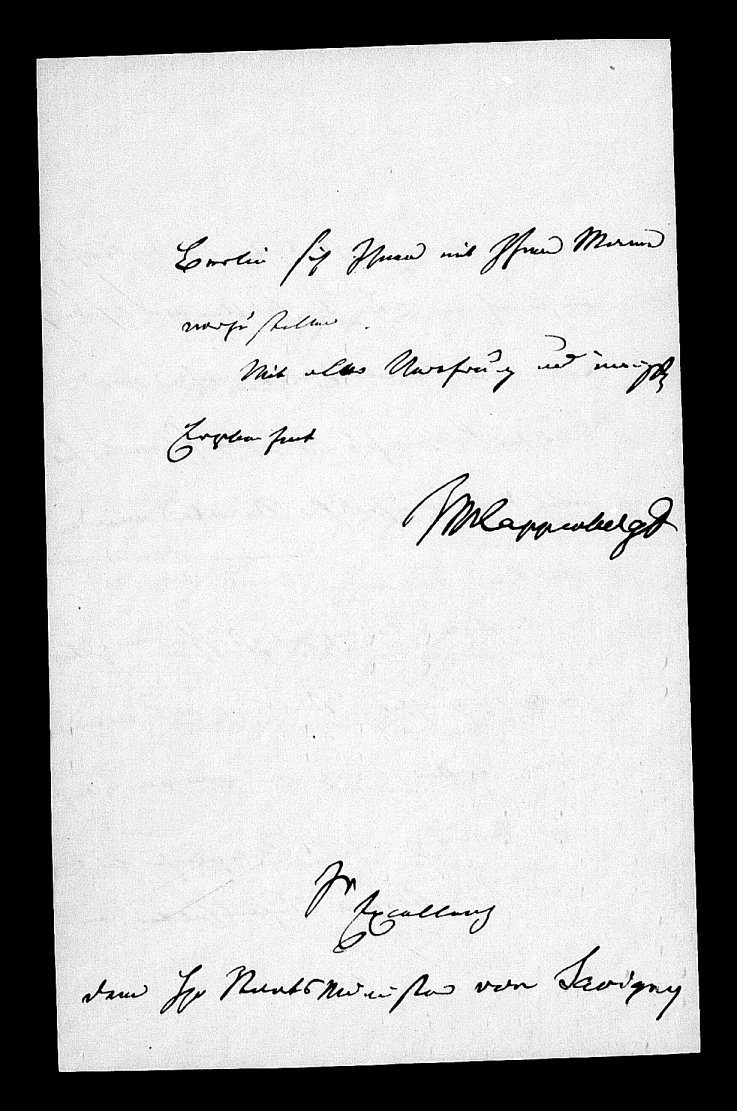 Berlin sich Ihnen mit Ihrem Namen
vorzustellen.
Mit aller Verehrung und innigster
Ergebenheit
JMLappenberg
Sr Excellenz
dem Hrn Staatsminister von Savigny